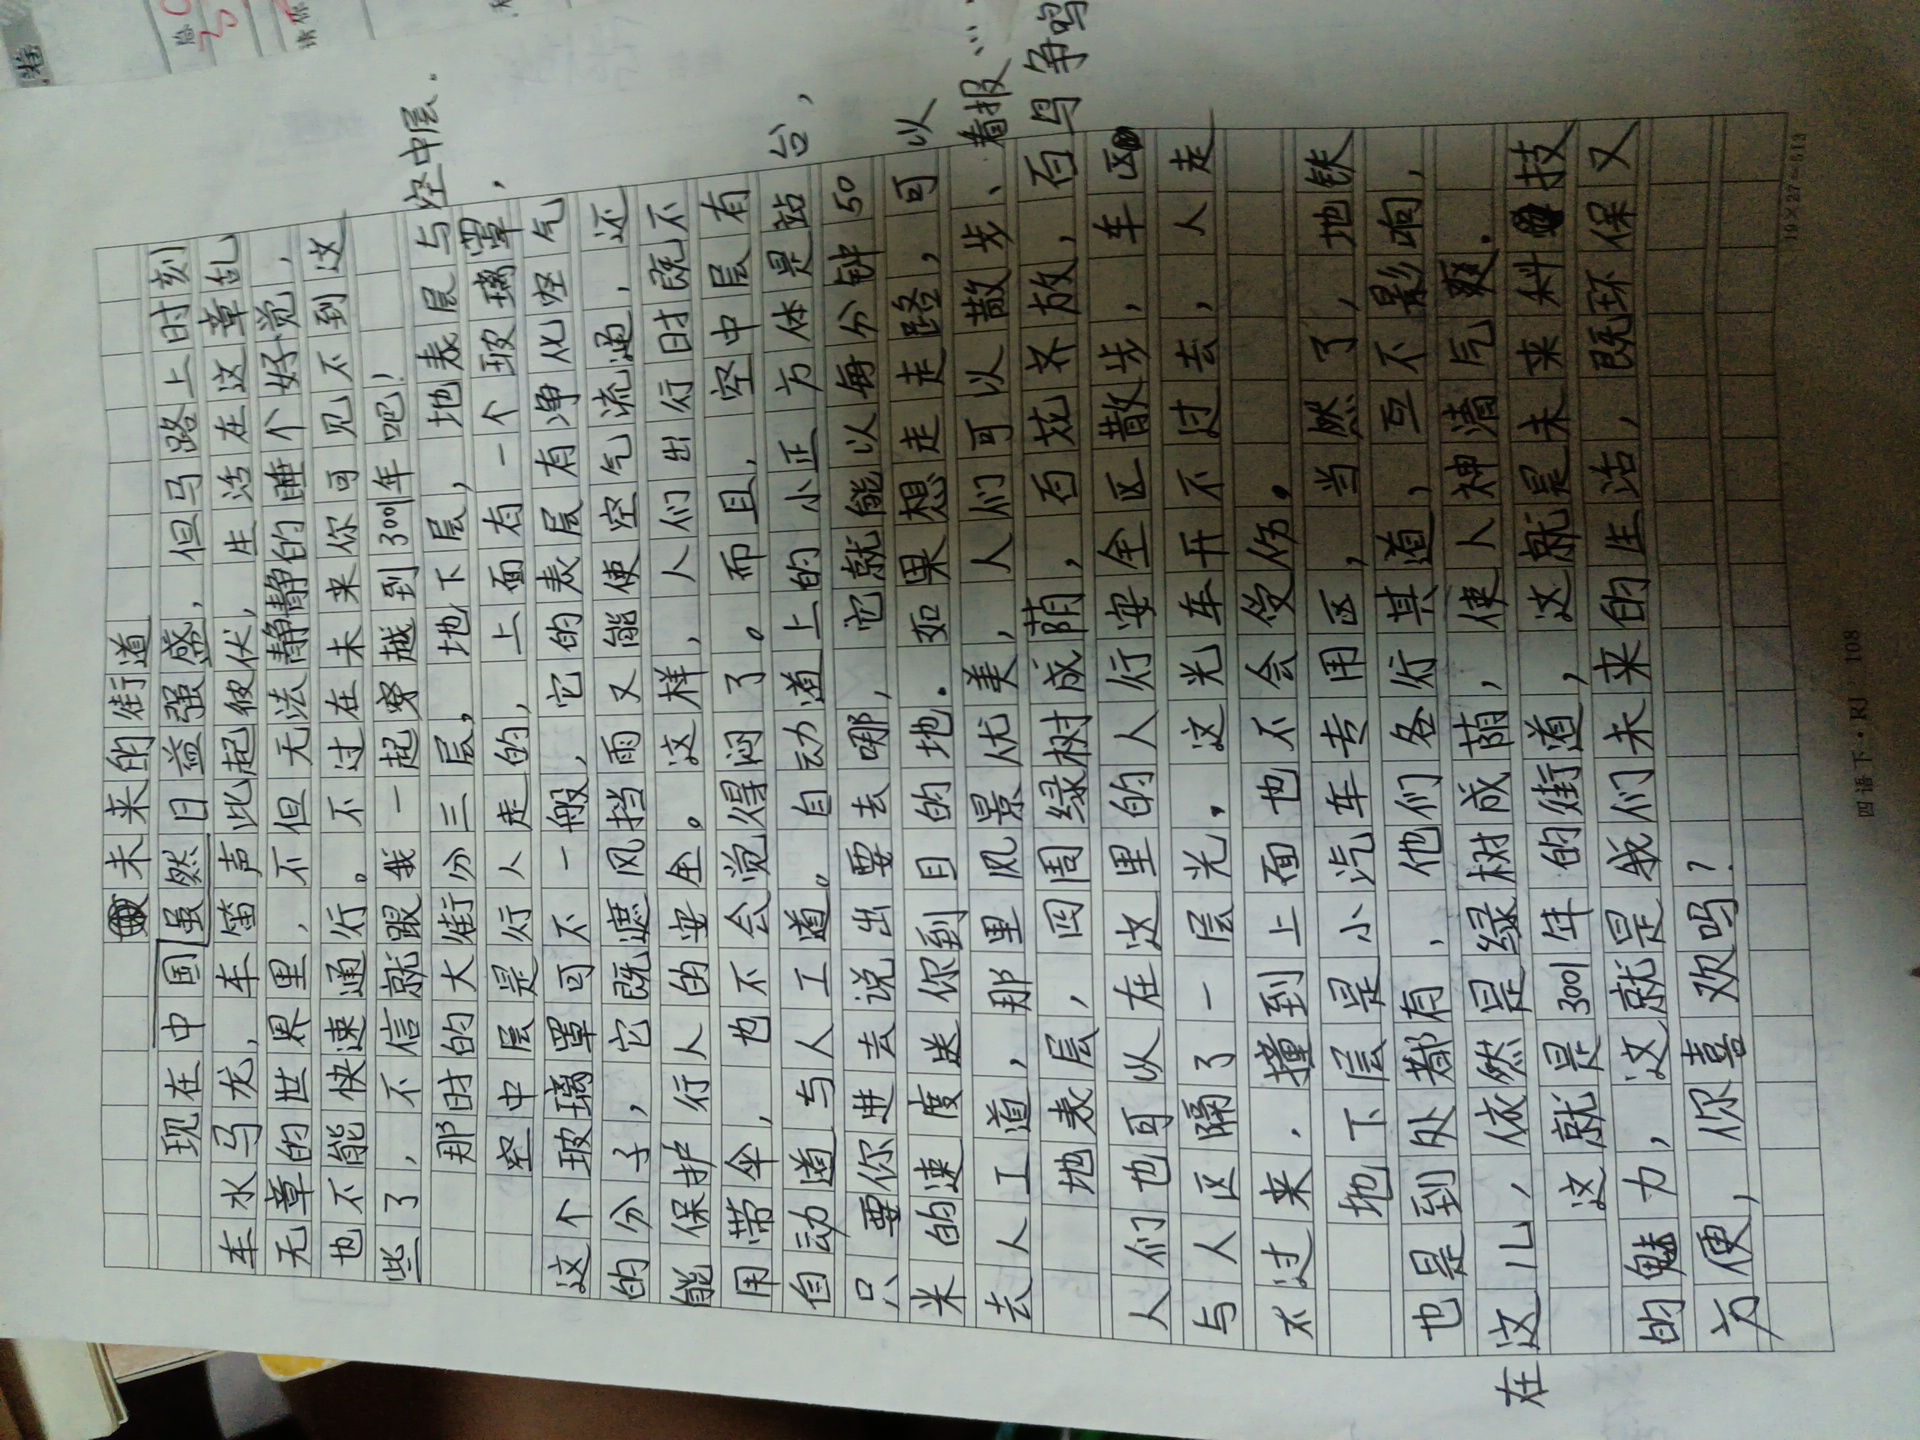 未来的街道
现在中国虽然日益强盛，但马路上时刻
车水马龙，车笛声此起彼伏，生活在这章乱
无章的世界里，不但无法静静的睡个好觉，
也不能快速通行。不过在未来你可见不到这
些了，不信就跟我一起穿越到3001年吧！
那时的大街分三层，地下层，地表层与空中层.
空中层是行人走的，上面有一个玻璃罩，
这个玻璃罩可不一般，它的表层有净化空气
的分子，它既遮风挡雨又能使空气流通，还
能保护行人的安全。这样，人们出行时既不
用带伞，也不会觉得闷了。而且，空中层有
自动道与人工道。自动道上的小正方体是站台，
只要你进去说出要去哪，它就能以每分钟50
米的速度送你到目的地.如果想走走路，可以
去人工道，那里风景优美，人们可以散步、看报……
地表层，四周绿树成荫，百花齐放，百鸟争鸣
人们也可以在这里的人行安全区散步，车区
与人区隔了一层光，这光车开不过去，人走
不过来.撞到上面也不会受伤。
地下层是小汽车专用区，当然了，地铁
也是到处都有，他们各行其道，互不影响，
在这儿，依然是绿树成荫，使人神清气爽.
这就是3001年的街道，这就是未来科技
的魅力，这就是我们未来的生活，既环保又
方便，你喜欢吗？
四语下·RJ 108